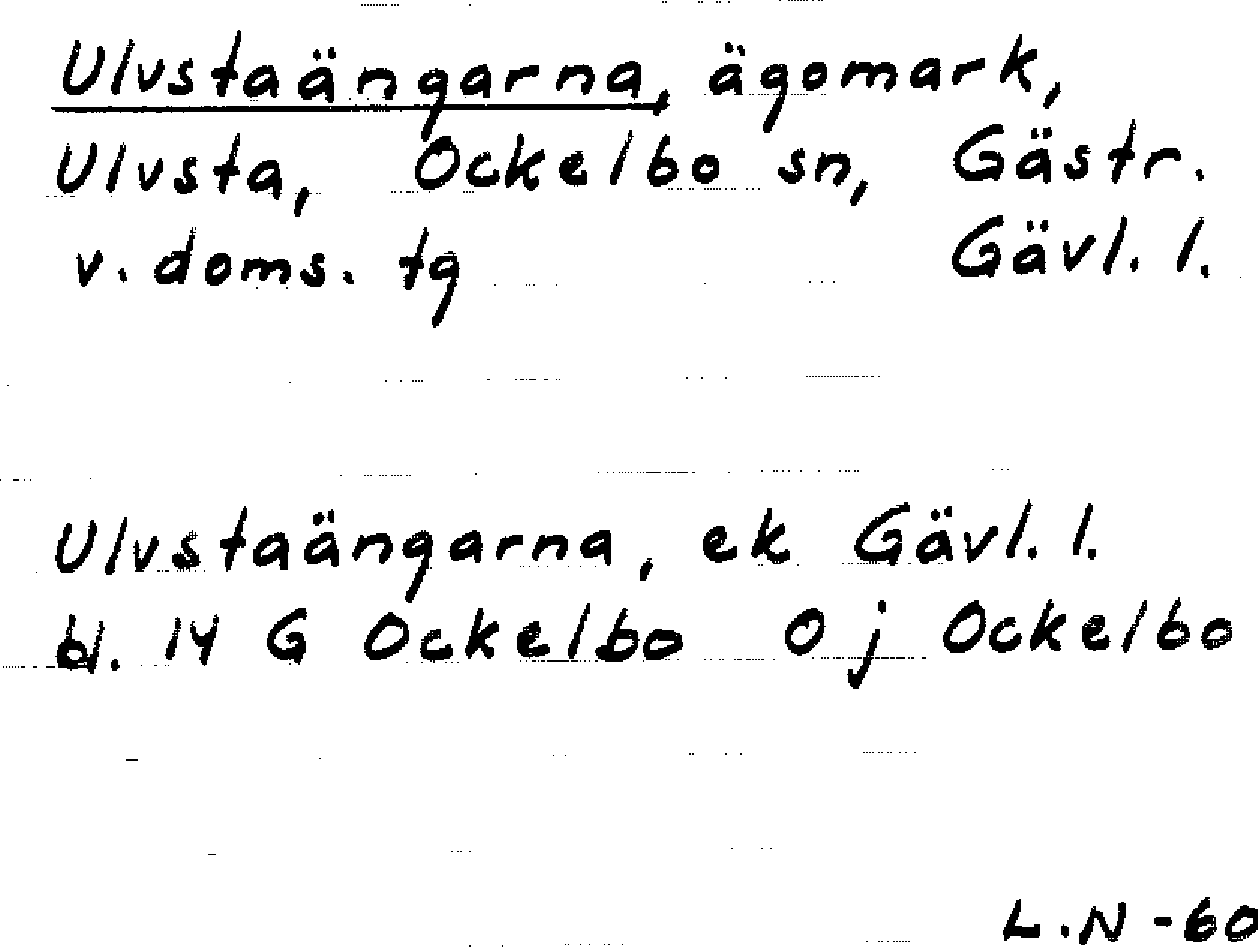 Ulvstaängarna, ägomark,
Ulvsta, Ockelbo sn, Gästr.
v. doms. tg Gävl. l.
Ulvstaängarna, ek Gävl. l.
bl. 14 G Ockelbo O j Ockelbo
L.N -60